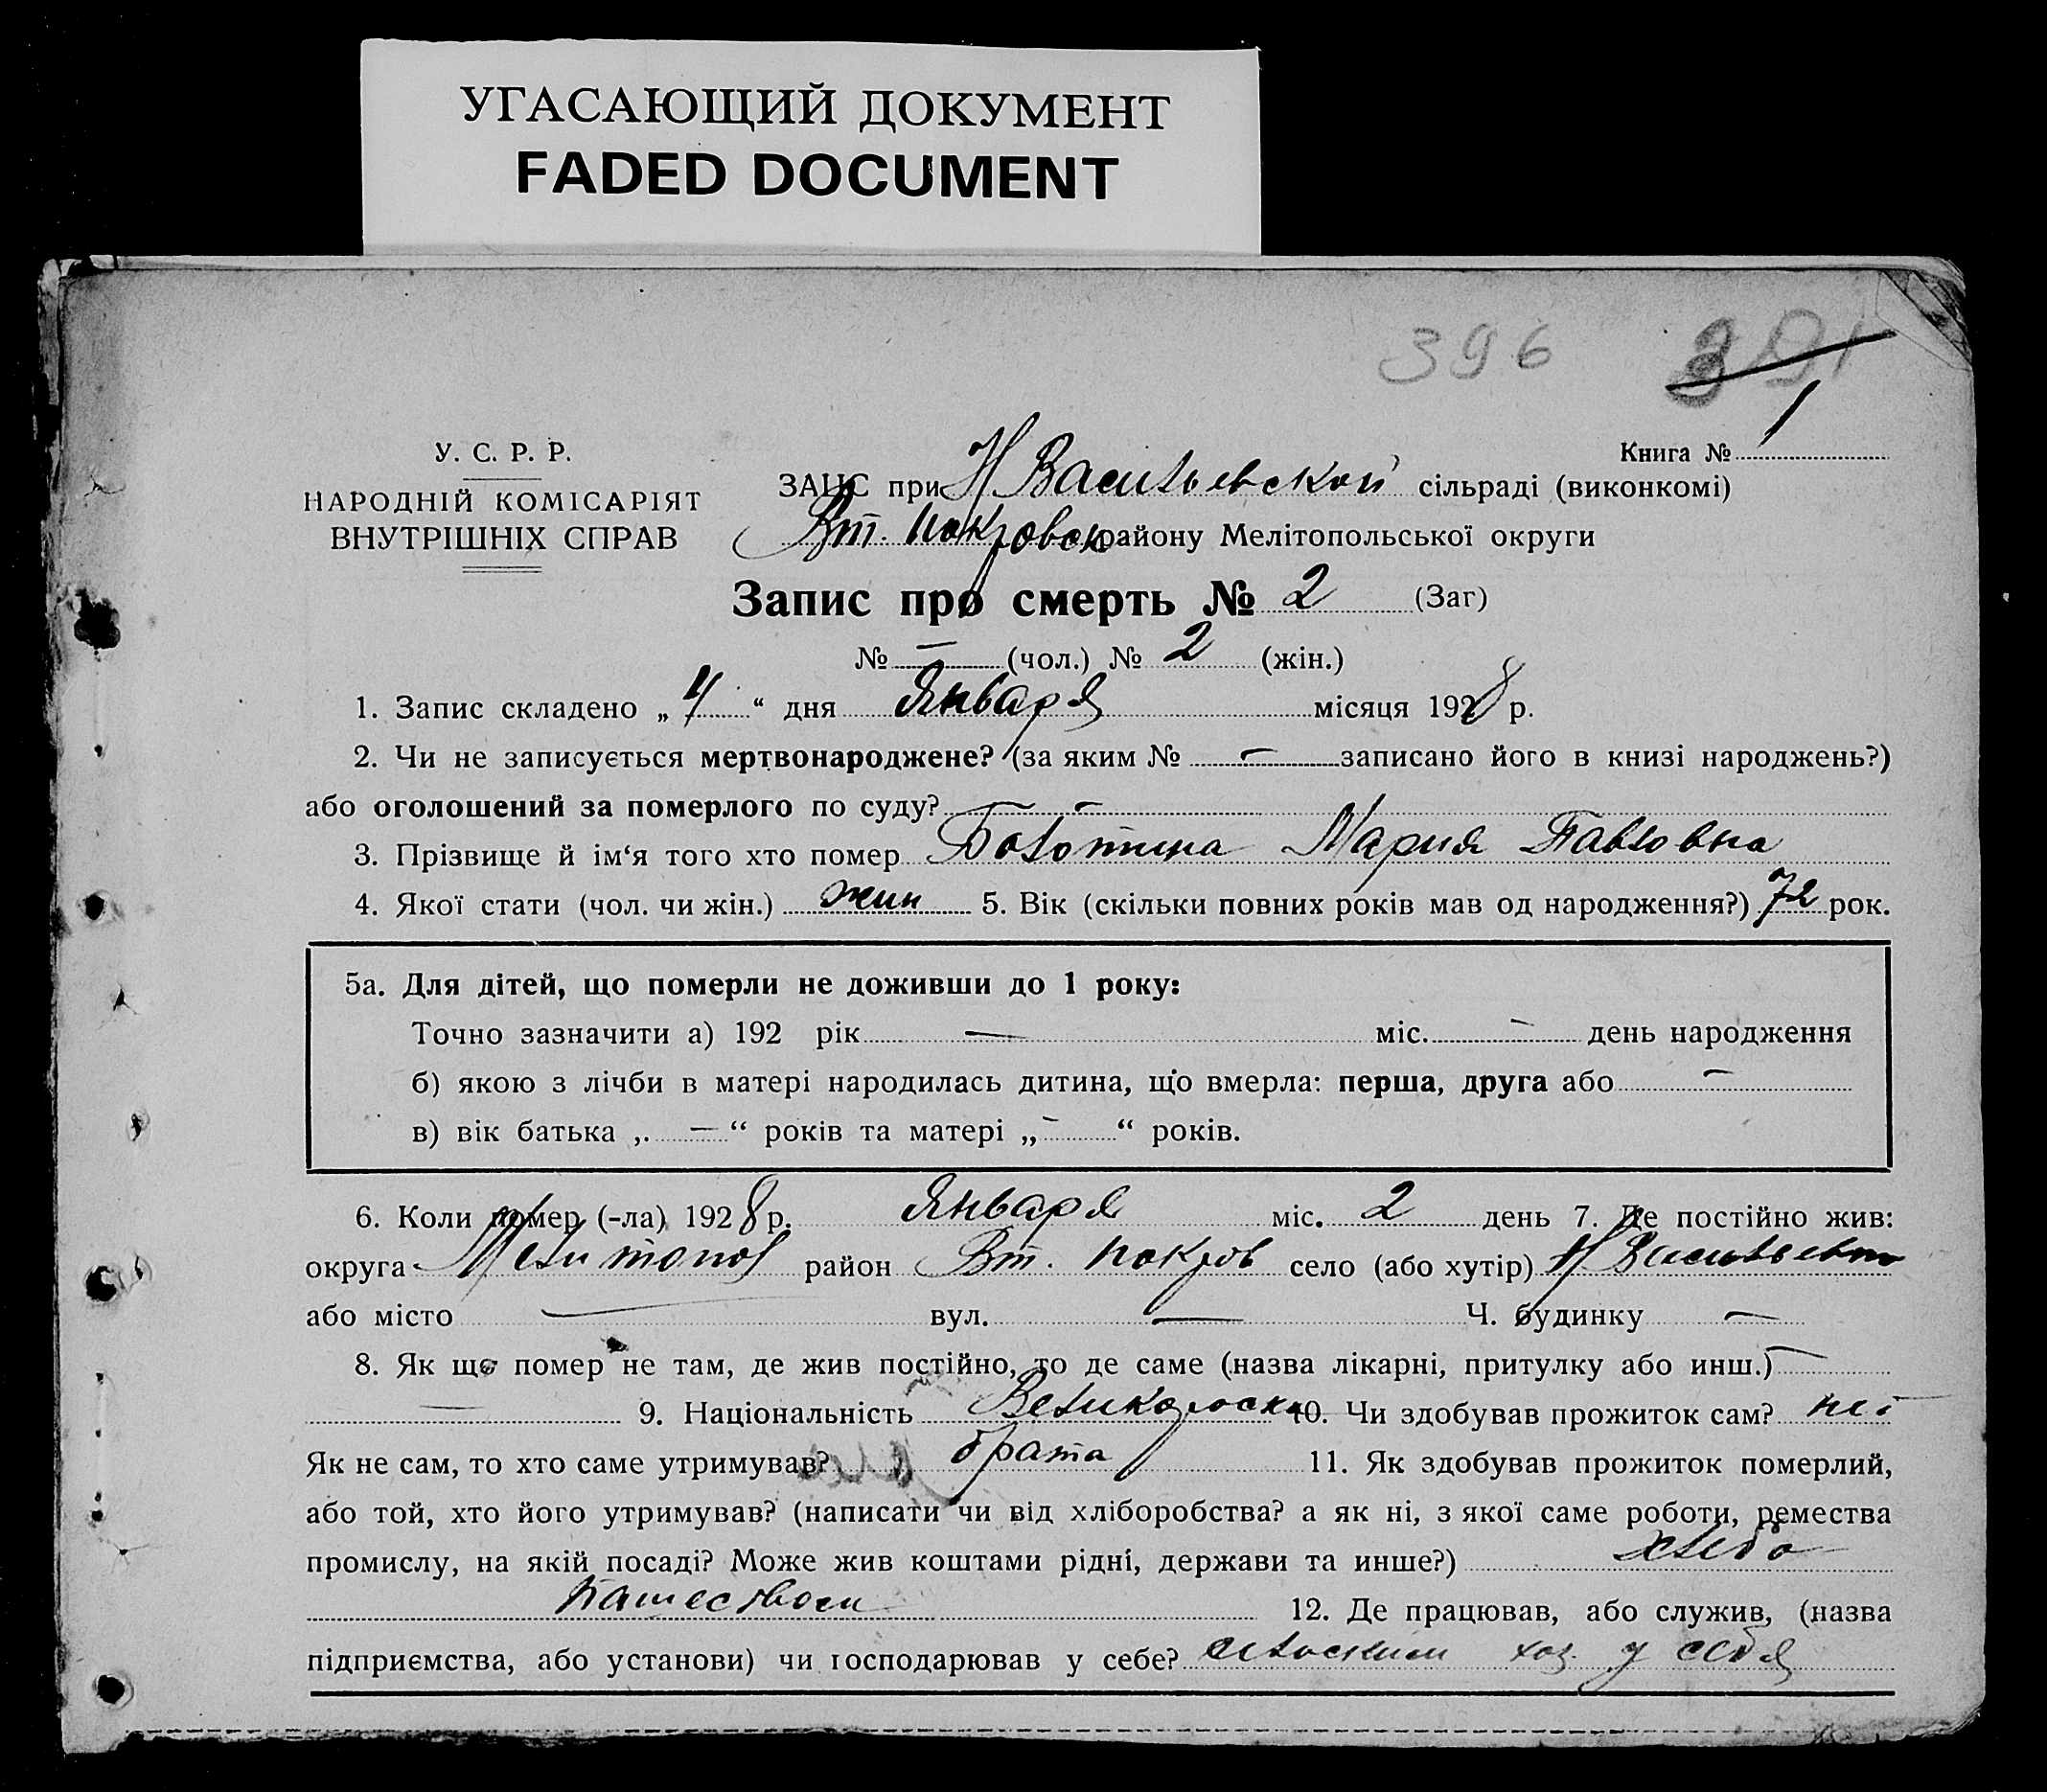 УГАСАЮЩИЙ ДОКУМЕНТ
FADED DOCUMENT
396 391
У. С. Р. Р.
НАРОДНІЙ КОМІСАРІЯТ
ВНУТРІШНІХ СПРАВ
Книга № 1
ЗАЦС при Н Васильевской сільраді (виконкомі)
Вт. Покровск району Мелітопольської округи
Запис про смерть № 2 (Заг)
№ — (чол.) № 2 (жін.)
1. Запис складено „ 4 “ дня Января місяця 1928 р.
2. Чи не записується мертвонароджене? (за яким № — записано його в книзі народжень?)
або оголошений за померлого по суду? —
3. Прізвище й ім‘я того хто помер Болотина Мария Павловна
4. Якої стати (чол. чи жін.) жин 5. Вік (скільки повних років мав од народження?) 72 рок.
5а. Для дітей, що померли не доживши до 1 року:
Точно зазначити а) 192 рік — міс. — день народження
б) якою з лічби в матері народилась дитина, що вмерла: перша, друга або —
в) вік батька ,. — “ років та матері „ — “ років.
6. Коли помер (-ла) 1928 р. Января міс. 2 день 7. Де постійно жив:
округа Мелитопол район Вт. Покров село (або хутір) Н Васильевка
або місто — вул. — Ч. будинку —
8. Як що помер не там, де жив постійно, то де саме (назва лікарні, притулку або инш.) —
— 9. Національність Великороска 10. Чи здобував прожиток сам? неі
Як не сам, то хто саме утримував? брата 11. Як здобував прожиток померлий,
або той, хто його утримував? (написати чи від хліборобства? а як ні, з якої саме роботи, ремества
промислу, на якій посаді? Може жив коштами рідні, держави та инше?) хлебо
пашеством 12. Де працював, або служив, (назва
підприємства, або установи) чи господарював у себе? сельским хоз. у себя